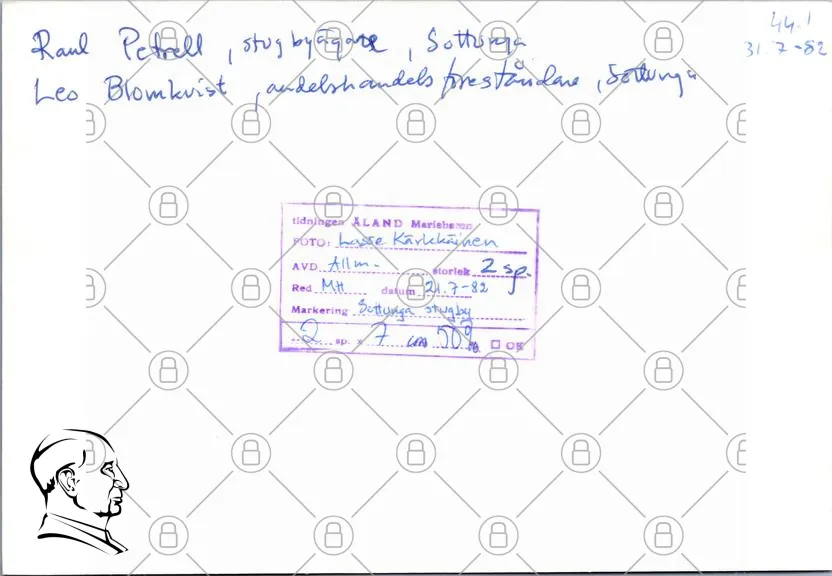 Raul Petrell, stugbyägare, Sottunga
Leo Blomkvist, andelshandels föreståndare, Sottunga
44.1
31.7-82
tidningen ÅLAND Mariehamn
FOTO: Lasse Kärkkäinen
AVD. Allm. storlek 2 sp.
Red MH datum 21.7-82
Markering Sottunga stugby
2 sp. x 7 cm 50% OK